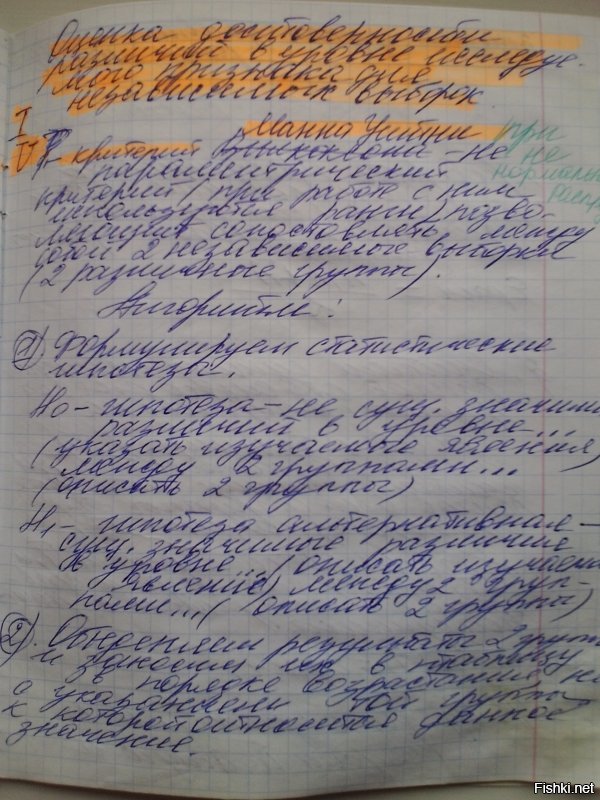 Оценка достоверности
различий в уровне исследуе-
мого признака для
независимых выборок.
I
Манна Уитни
при
не
нормальн
распр
U - критерий Вилкоксона - не
параметрический
критерий, при работе с ним
используется ранги, позво-
ляющий сопоставлять между
собой 2 независимые выборки
(2 различные группы).
Алгоритм:
1) Формулируем статистические
гипотезы.
H0 - гипотеза - не сущ. значимых
различий в уровне...
(указать изучаемое явление)
между 2 группами...
(описать 2 группы)
H1 - гипотеза альтернативная -
сущ. значимые различия
в уровне... (описать изучаем
явление) между 2 груп-
пами... (описать 2 группы)
2). Объединяем результаты 2 групп
и заносим их в таблицу
в порядке возрастания
с указанием той группы
к которой относится данное
значение.
Fishki.net